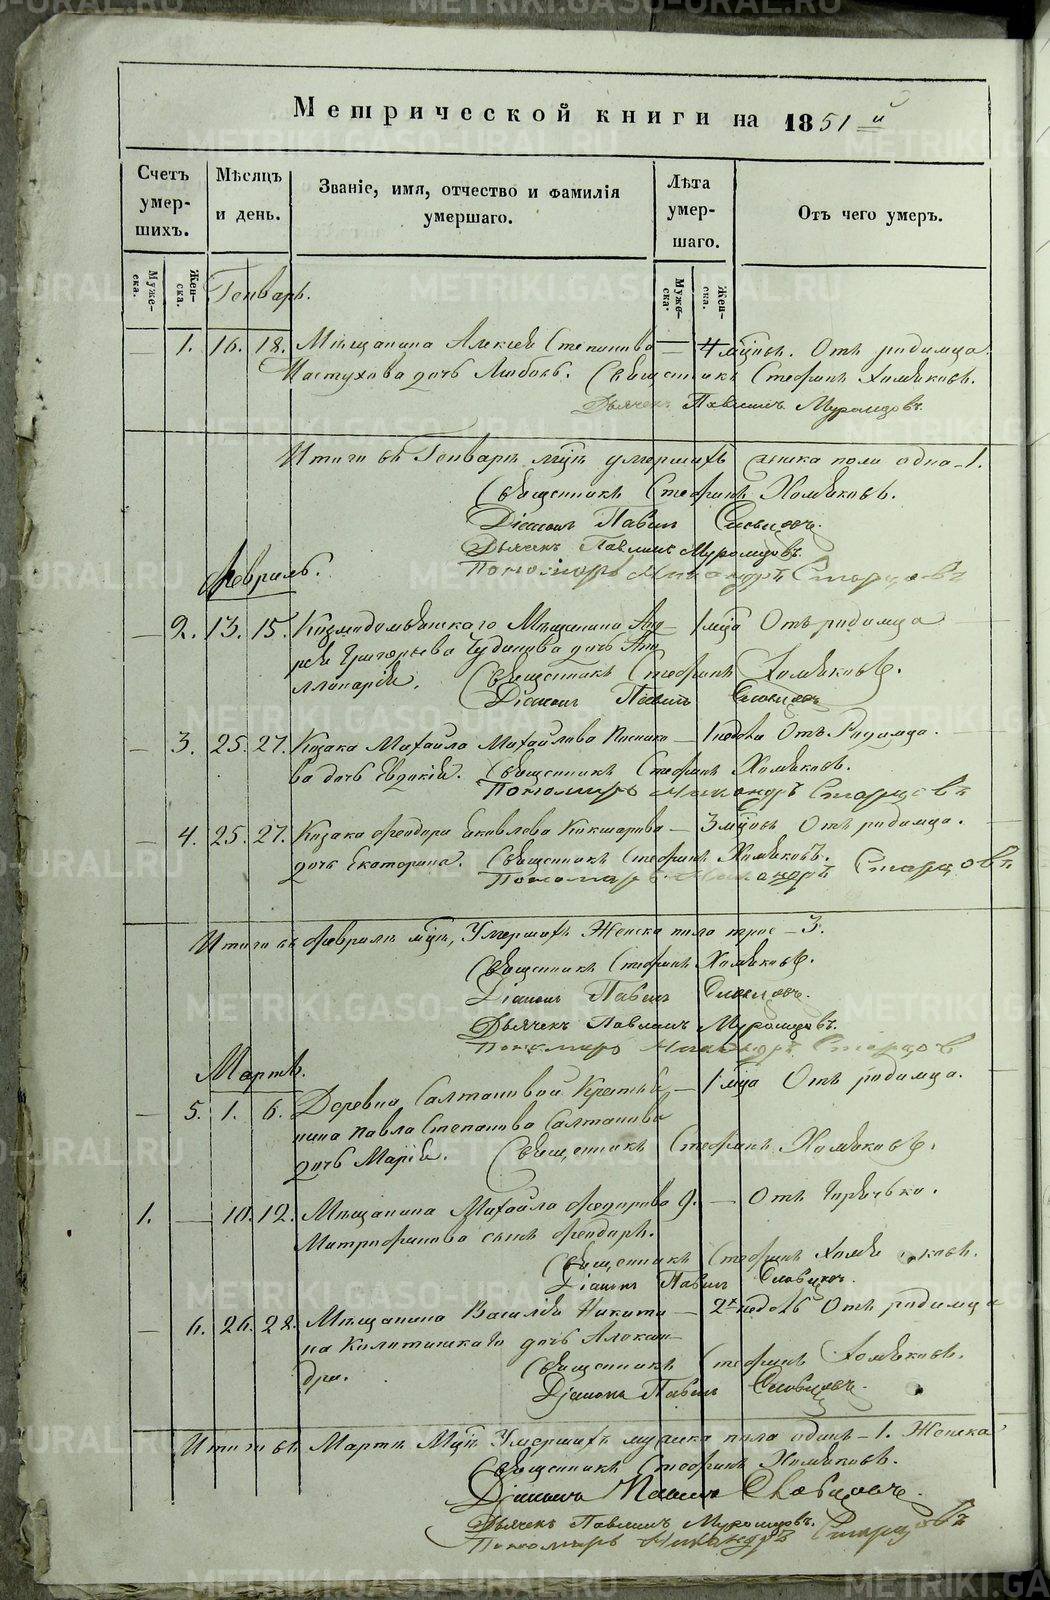 Метрической книги на 1851 й
Счетъ умершихъ. Мѣсяцъ и день. Званіе, имя, отчество и фамилія умершаго. Лѣта умершаго. Отъ чего умеръ.
Мужеска. Женска. Мужеска. Женска.
Генварь.
— 1. 16. 18. Мѣщанина Алексѣя Степанова — 4 мѣсцовъ. Отъ родимца.
Пастухова дочь Любовь. Священникъ Стефанъ Хомяковъ.
Дьячекъ Павлинъ Муромцовъ.
Итого въ Генварѣ мцѣ умершихъ женска пола одна – 1.
Священникъ Стефанъ Хомяковъ.
Діаконъ Павелъ Словцовъ.
Дьячекъ Павлинъ Муромцовъ.
Пономарь Никандръ Старцовъ
Февраль.
— 2. 13. 15. Козмодомьянскаго Мѣщанина Анд- 1 мца Отъ родимца
рея Григорьева Чудинова дочь Апо-
ллинарія. Священникъ Стефанъ Хомяковъ.
Діаконъ Павелъ Словцовъ
— 3. 25. 27. Казака Михайла Михайлова — 1 недѣли Отъ Родимца.
ва дочь Евдокія. Священникъ Стефанъ Хомяковъ.
Пономарь Никандръ Старцовъ
— 4. 25. 27. Казака Феодора Яковлева Кокшарова — 3 мцовъ Отъ родимца.
дочь Екатерина. Священникъ Стефанъ Хомяковъ.
Пономарь Никандръ Старцовъ
Итого въ Февралѣ мцѣ, Умершихъ Женска пола трое – 3.
Священникъ Стефанъ Хомяковъ.
Діаконъ Павелъ Словцовъ.
Дьячекъ Павлинъ Муромцовъ.
Пономарь Никандръ Старцовъ
Мартъ.
— 5. 1. 6. Деревни Салтановой Крестья- — 1 мца Отъ родимца.
нина Павла Степанова Салтанова
дочь Марія. Священникъ Стефанъ Хомяковъ.
1. — 10. 12. Мѣщанина Михайла Федорова 9. — Отъ Горячьки.
Митрофанова сынъ Феодоръ.
Священникъ Стефанъ Хомяковъ.
Діаконъ Павелъ Словцовъ.
— 6. 26. 28. Мѣщанина Василія Никити- — 2хъ недѣль Отъ родимца
на дочь Алексан-
дра. Священникъ Стефанъ Хомяковъ.
Діаконъ Павелъ Словцовъ.
Итого въ Мартѣ Мцѣ Умершихъ мужска пола одинъ – 1. Женска
Священникъ Стефанъ Хомяковъ.
Діаконъ Павелъ Словцовъ.
Дьячекъ Павлинъ Муромцовъ.
Пономарь Никандръ Старцовъ
METRIKI.GASO-URAL.RU